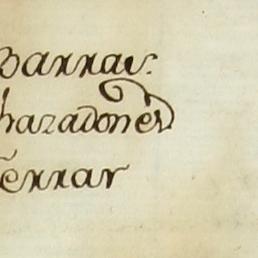 Barras.
hazadones
errar